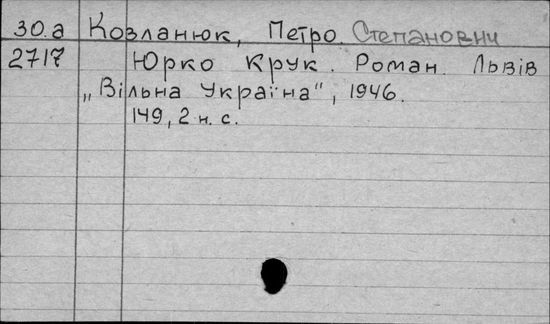 30.а Козланюк, Петро Степанович
2717 Юрко Крук. Роман. Львів
„Вільна Україна", 1946.
149, 2 н. с.